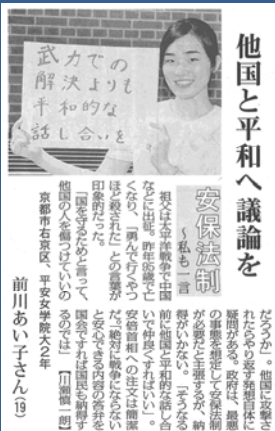 他国と平和へ議論を
武力での
解決よりも
平和的な
話し合いを
安保法制
～私も一言
祖父は太平洋戦争で中国
などに出征。昨年95歳で亡
くなり、「勇んで行くやつ
ほど殺された」との言葉が
印象的だった。
「国を守るためと言って、
他国の人を傷つけていいの
だろうか」。他国に攻撃さ
れたらやり返す発想自体に
疑問がある。政府は、最悪
の事態を想定して安保法制
が必要だと主張するが、納
得がいかない。「そうなる
前に他国と平和的な話し合
いで仲良くすればいい」。
安倍首相への注文は簡潔
だ。「絶対に戦争にならない
と安心できる内容の答弁を
国会ですれば国民も納得す
るのでは」　【川瀬慎一朗】
京都市右京区、平安女学院大2年
前川あい子さん(19)